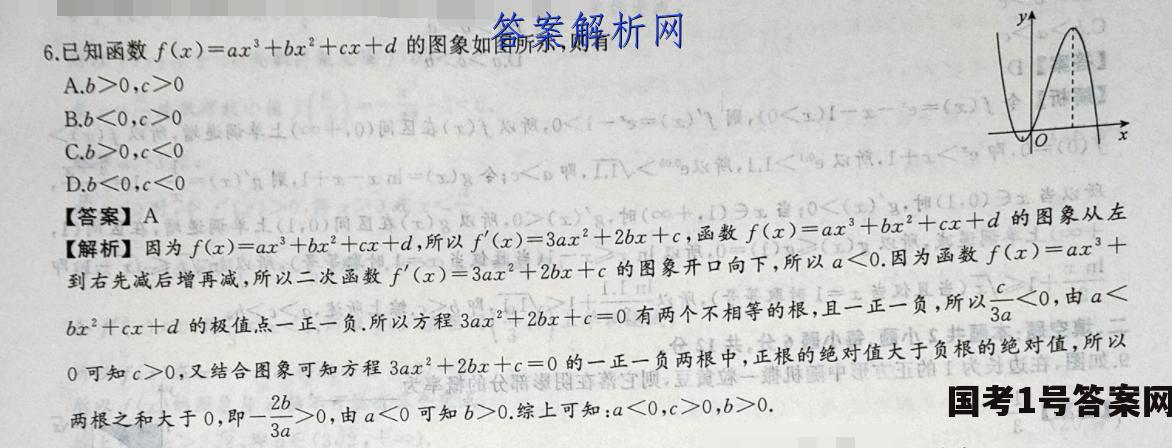 答案解析网
6.已知函数 f(x)=ax³+bx²+cx+d 的图象如图所示,则有
A.b>0,c>0
B.b<0,c>0
C.b>0,c<0
D.b<0,c<0
y
O
x
【答案】A
【解析】因为 f(x)=ax³+bx²+cx+d,所以 f′(x)=3ax²+2bx+c,函数 f(x)=ax³+bx²+cx+d 的图象从左
到右先减后增再减,所以二次函数 f′(x)=3ax²+2bx+c 的图象开口向下,所以 a<0.因为函数 f(x)=ax³+
bx²+cx+d 的极值点一正一负,所以方程 3ax²+2bx+c=0 有两个不相等的根,且一正一负,所以c/3a<0,由 a<
0 可知 c>0,又结合图象可知方程 3ax²+2bx+c=0 的一正一负两根中,正根的绝对值大于负根的绝对值,所以
两根之和大于 0,即-2b/3a>0,由 a<0 可知 b>0.综上可知:a<0,c>0,b>0.
国考1号答案网